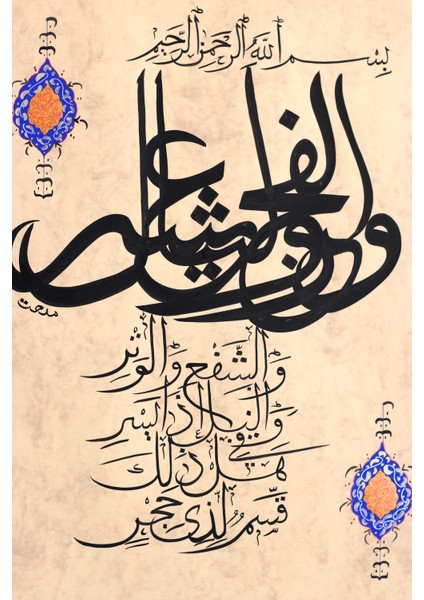 بِسْمِ اللَّهِ الرَّحْمَنِ الرَّحِيمِ
والفجر وليال عشر
مدحت
وَالشَّفْعِ وَالْوَتْرِ
وَاللَّيْلِ إِذَا يَسْرِ
هَلْ فِي ذَلِكَ
قَسَمٌ لِذِي حِجْرٍ